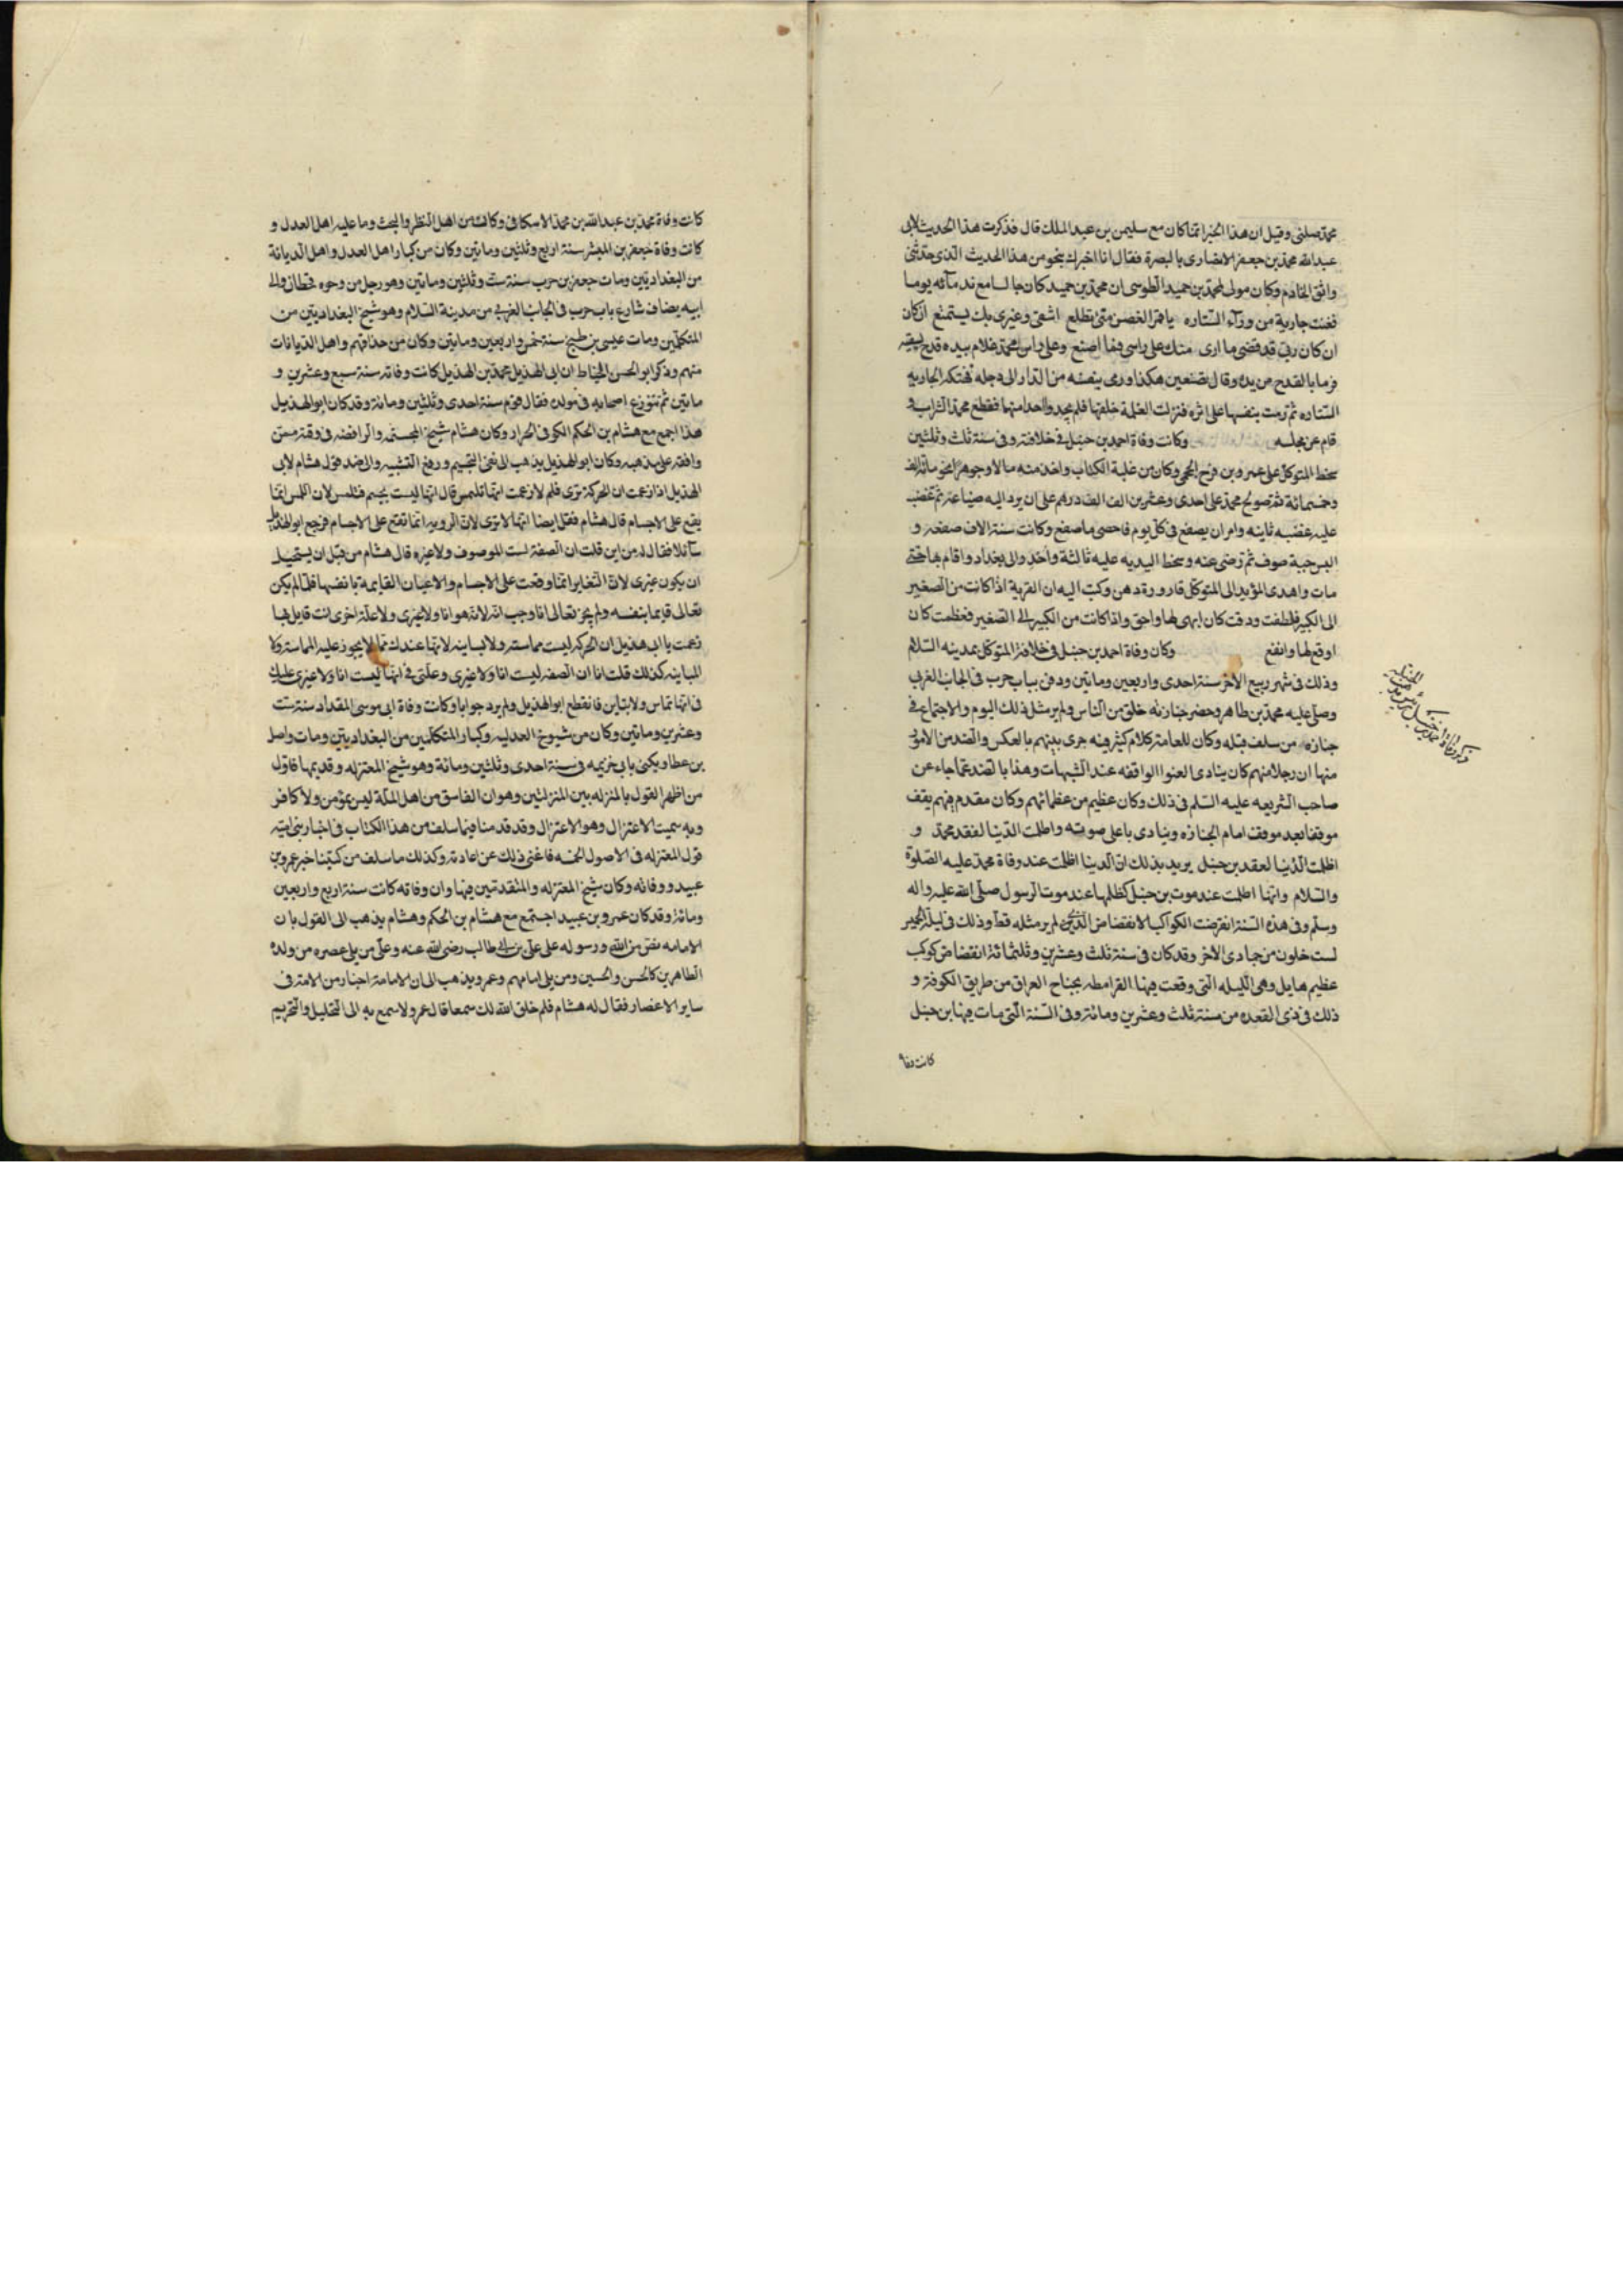 محمد صلتى وقيل ان هذا الخبر انما كان مع سليمن بن عبد الملك قال فذكرت هذا الحديث لابى
عبد الله محمد بن جعفر الانصارى بالبصرة فقال انا اخبرك بنحو من هذا الحديث الذى حدثنى
واثق الخادم وكان مولى لمحمد بن حميد الطوسى ان محمد بن حميد كان جالسا مع ندمائه يوما
فغنت جارية من ورآء الستاره يا قمر القصر متى تطلع اشقى وغيرى بك يستمتع
ان كان ربى قد قضى ما ارى منك على راسى فما اصنع وعلى راس محمد غلام بيده قدح يسقيه
فرما بالقدح من يده وقال تصنعين هكذا ورمى بنفسه من الدار الى دجله فهتكت الجاريه
الستاره ثم رمت بنفسها على اثره فنزلت الغلمة خلفها فلم يجدوا احدا منهما فقطع محمد الشراب و
قام عن مجلسه وكانت وفاة احمد بن حنبل فى خلافته وفى سنة ثلث وثلثين
سخط المتوكل على عمرو بن فرج الرخجى وكان من علية الكتاب واخذ منه مالا وجوهرا نحو مائة الف
وخمسمائة ثم صولح محمد على احدى وعشرين الف الف درهم على ان يرد اليه ضياعه ثم غضب
عليه غضبه ثانيه وامر ان يصفع فى كل يوم فاحصى ما صفع وكانت ستة الاف صفعه و
البس جبة صوف ثم رضى عنه وسخط اليديه عليه ثالثة واحدر الى بغداد واقام بها حتى
مات واهدى المؤبد الى المتوكل قارورة دهن وكتب اليه ان الهدية اذا كانت من الصغير
الى الكبير فلطفت ودقت كان ابهى لها واحق واذا كانت من الكبير الى الصغير فعظمت كان
اوقع لها وانفع وكان وفاة احمد بن حنبل فى خلافة المتوكل بمدينه السلام
وذلك فى شهر ربيع الاخر سنة احدى واربعين ومايتين ودفن بباب حرب فى الجانب الغربى
وصلى عليه محمد بن طاهر وحضر جنازته خلق من الناس ولم ير مثل ذلك اليوم والاجتماع فى
جنازه من سلف قبله وكان للعامة كلام كثير فيه جرى بينهم بالعكس والضد من الامور
منها ان رجلا منهم كان ينادى العنوا الواقفه عند الشبهات وهذا بالضد عما جاء عن
صاحب الشريعه عليه السلم فى ذلك وكان عظيم من عظمائهم وكان مقدم فيهم يقف
موقفا بعد موقف امام الجنازه وينادى باعلى صوته واظلمت الدنيا لفقد محمد و
اظلمت الدنيا لفقد بن حنبل يريد بذلك ان الدنيا اظلمت عند وفاة محمد عليه الصلوة
والسلام وانها اظلمت عند موت بن حنبل كظلمها عند موت الرسول صلى الله عليه واله
وسلم وفى هذه السنة انقضت الكواكب الانقضاض الذى لم ير مثله قط وذلك فى ليلة الخميس
لست خلون من جمادى الاخر وقد كان فى سنة ثلث وعشرين وثلثمائة انقضاض كوكب
عظيم هايل وهى الليله التى وقعت فيها القرامطه بحجاج العراق من طريق الكوفة و
ذلك فى ذى القعده من سنة ثلث وعشرين ومائة وفى السنة التى مات فيها ابن حنبل
كانت وفاة
كانت وفاة محمد بن عبد الله بن محمد الاسكافى وكان من اهل النظر والبحث وما عليه اهل العدل و
كانت وفاة جعفر بن المبشر سنة اربع وثلثين ومايتين وكان من كبار اهل العدل واهل الديانة
من البغداديين ومات جعفر بن حرب سنة ست وثلثين ومايتين وهو رجل من وجوه قحطان والى
ابيه يضاف شارع باب حرب فى الجانب الغربى من مدينة السلام وهو شيخ البغداديين من
المتكلمين ومات عيسى بن صبيح سنة خمس واربعين ومايتين وكان من حذاقهم واهل الديانات
منهم وذكر ابو الحسن الخياط ان ابى الهذيل محمد بن الهذيل كانت وفاته سنة سبع وعشرين و
مايتين ثم تنوزع اصحابه فى مولده فقال قوم سنة احدى وثلثين ومائة وقد كان ابو الهذيل
هذا اجمع مع هشام بن الحكم الكوفى الحرار وكان هشام شيخ المجسمه والرافضه فى وقته ممن
وافقه على مذهبه وكان ابو الهذيل يذهب الى نفى التجسيم ورفع التشبيه والى ضد قول هشام لابى
الهذيل اذا زعمت ان الحركة ترى فلم لا زعمت انها تلمس قال انها ليست بجسم فتلمس لان اللمس انما
يقع على الاجسام قال هشام فقل ايضا انها لا ترى لان الرويه انما تقع على الاجسام فرجع ابو الهذيل
سآئلا فقال له من اين قلت ان الصفة ليست الموصوف ولا غيره قال هشام من قبل ان يستحيل
ان يكون غيرى لان التغاير انما وقعت على الاجسام والاعيان القايمة بانفسها فلما لم يكن
تعالى قايما بنفسه ولم يجز تعالى انا وجب انه لا هو انا ولا غيرى ولا علة اخرى انت قايل بها
زعمت يا ابا هذيل ان الحركه ليست مماسته ولا مباينه لانها عندك مما لا يجوز عليه المماسة ولا
المباينه كذلك قلت انا ان الصفه ليست انا ولا غيرى وعلتى فى انها ليست انا ولا غيرى علتك
فى انها تماس ولا تباين فانقطع ابو الهذيل ولم يرد جوابا وكانت وفاة ابى موسى المقداد سنة ست
وعشرين ومايتين وكان من شيوخ العدليه وكبار المتكلمين من البغداديين ومات واصل
بن عطا ويكنى بابى حذيفه فى سنة احدى وثلثين ومائة وهو شيخ المعتزله وقديمها فاول
من اظهر القول بالمنزله بين المنزلتين وهو ان الفاسق من اهل الملة ليس بمؤمن ولا كافر
وبه سميت الاعتزال وهو الاعتزال وقد قدمنا فيما سلف من هذا الكتاب فى اخبار بنى اميه
قول المعتزله فى الاصول الخمسه فاغنى ذلك عن اعادته وكذلك ما سلف من كتبنا خبر عمرو بن
عبيد ووفاته وكان شيخ المعتزله والمتقدمين فيها وان وفاته كانت سنة اربع واربعين
ومائة وقد كان عمرو بن عبيد اجتمع مع هشام بن الحكم وهشام يذهب الى القول بان
الامامه نص من الله ورسوله على على بن ابى طالب رضى الله عنه وعلى من يلى عصره من ولده
الطاهرين كالحسن والحسين ومن يلى امامهم وعمرو يذهب الى ان الامامة اختيار من الامة فى
ساير الاعصار فقال له هشام فلم خلق الله لك سمعا قال عمرو لاسمع به الى التحليل والتحريم